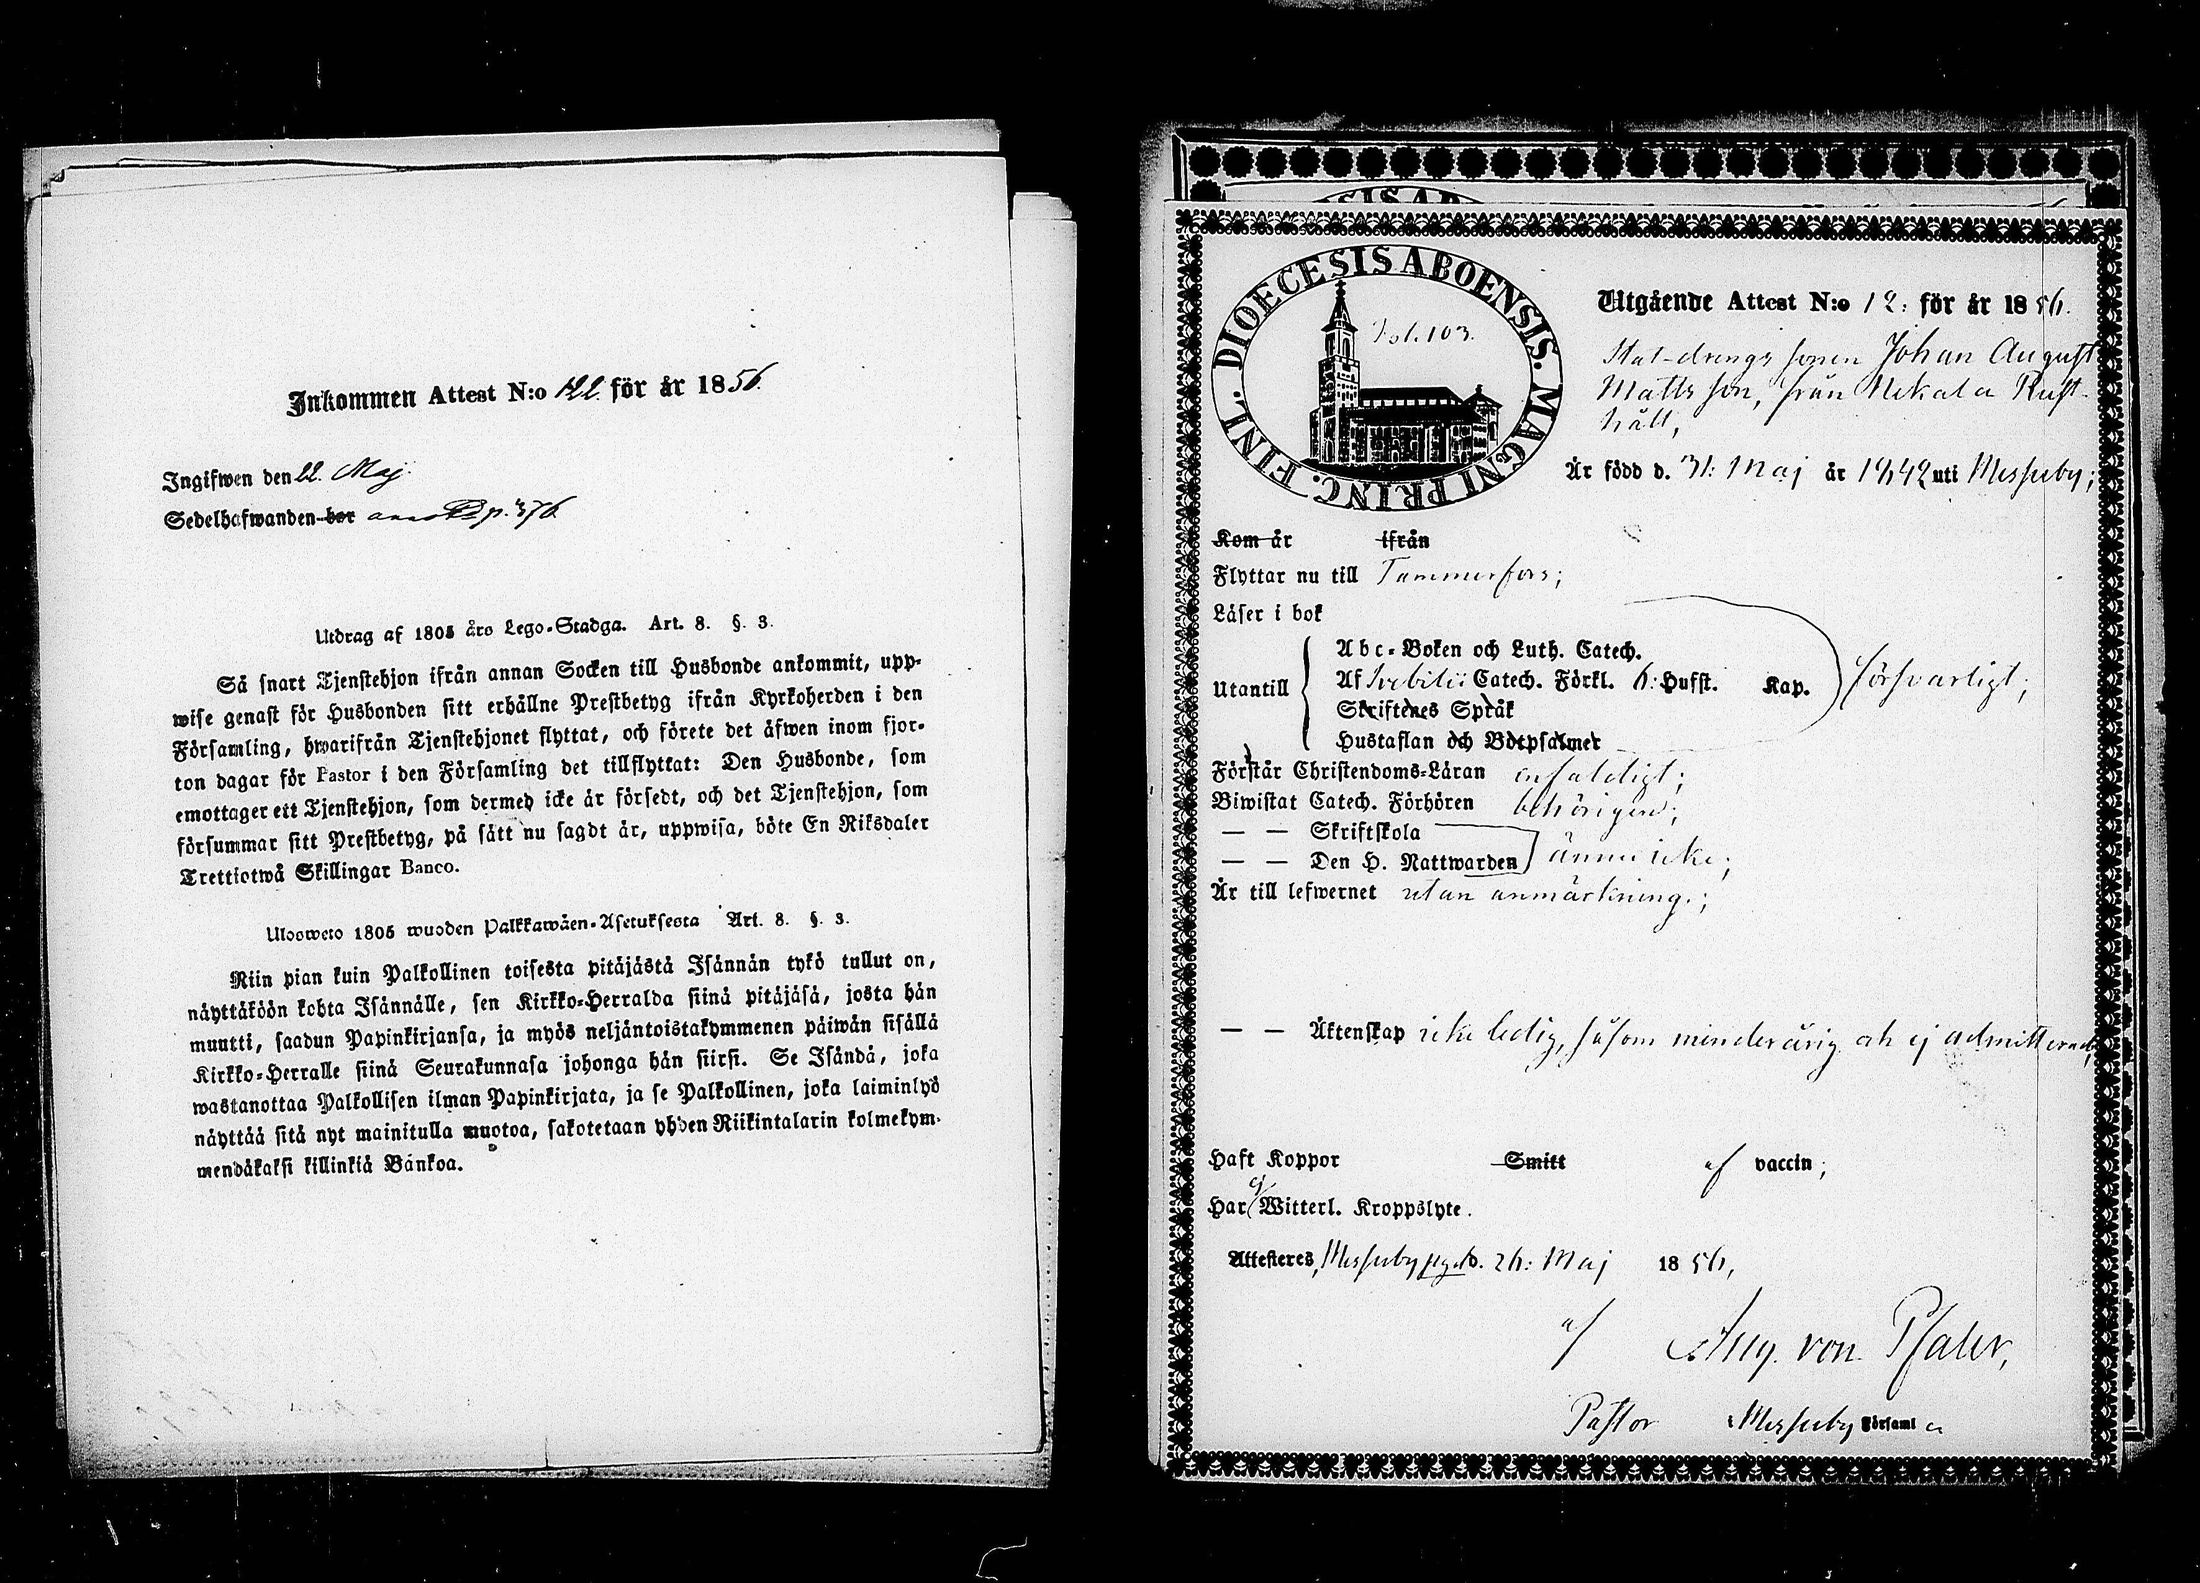 Inkommen Attest N:o 122. för år 1856.
Ingifwen den 22. Maj.
Sedelhafwanden bor p. 376.
Utdrag af 1805 års Lego-Stadga. Art. 8. §. 3.
Så snart Tjenstehjon ifrån annan Socken till Husbonde ankommit, upp-
wise genast för Husbonden sitt erhållne Prestbetyg ifrån Kyrkoherden i den
Församling, hwarifrån Tjenstehjonet flyttat, och förete det äfwen inom fjor-
ton dagar för Pastor i den Församling det tillflyttat: Den Husbonde, som
emottager ett Tjenstehjon, som dermed icke är försedt, och det Tjenstehjon, som
försummar sitt Prestbetyg, på sätt nu sagdt är, uppwisa, böte En Riksdaler
Trettiotwå Skillingar Banco.
Ulosweto 1805 wuoden Palkkawäen-Asetuksesta Art. 8. §. 3.
Niin pian kuin Palkollinen toisesta pitäjästä Isännän tykö tullut on,
näyttäköön kohta Isännälle, sen Kirkko-Herralda siinä pitäjäsä, josta hän
muutti, saadun Papinkirjansa, ja myös neljäntoistakymmenen päiwän sisällä
Kirkko-Herralle siinä Seurakunnasa johonga hän siirsi. Se Isändä, joka
wastanottaa Palkollisen ilman Papinkirjata, ja se Palkollinen, joka laiminlyö
näyttää sitä nyt mainitulla muotoa, sakotetaan yhden Riikintalarin kolmekym-
mendäkaksi killinkiä Bankoa.
DIOECESIS ABOENSIS. MAGNI PRINC. FINL.
Fol. 103.
Utgående Attest N:o 12: för år 1856.
Stat-drengs sonen Johan August
Mattsson, från Nekala Rust-
håll,
Är född d. 31: Maj år 1842 uti Messuby;
Kom år ifrån
Flyttar nu till Tammerfors;
Läser i bok
Utantill
Abc-Boken och Luth. Catech.
Af Svebilii Catech. Förkl. 6: Hufst. Kap.
Skriftenes Språk
Hustaflan och Botpsalmer
försvarligt;
Förstår Christendoms-Läran enfaldigt;
Biwistat Catech. Förhören behörigen;
— — Skriftskola
— — Den H. Nattwarden ännu icke;
Är till lefwernet utan anmärkning.;
— — Äktenskap icke ledig, såsom minderårig och ej admitterad;
Haft Koppor Smitt af vaccin;
Har ej Witterl. Kroppslyte.
Attesteres, Messuby pgd d. 26: Maj 1856,
af Aug. von Pfaler,
Pastor i Messuby Församl a